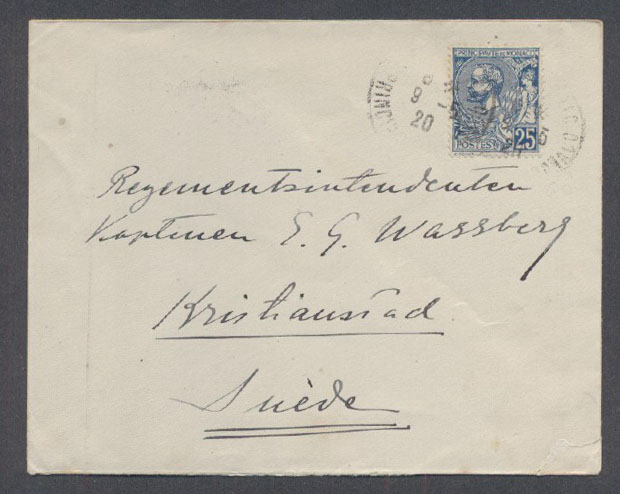 PRINCIPAUTÉ DE MONACO
POSTES 25
Regementsintendenten
Kaptenen E. G. Wassberg
Kristianstad
Suède